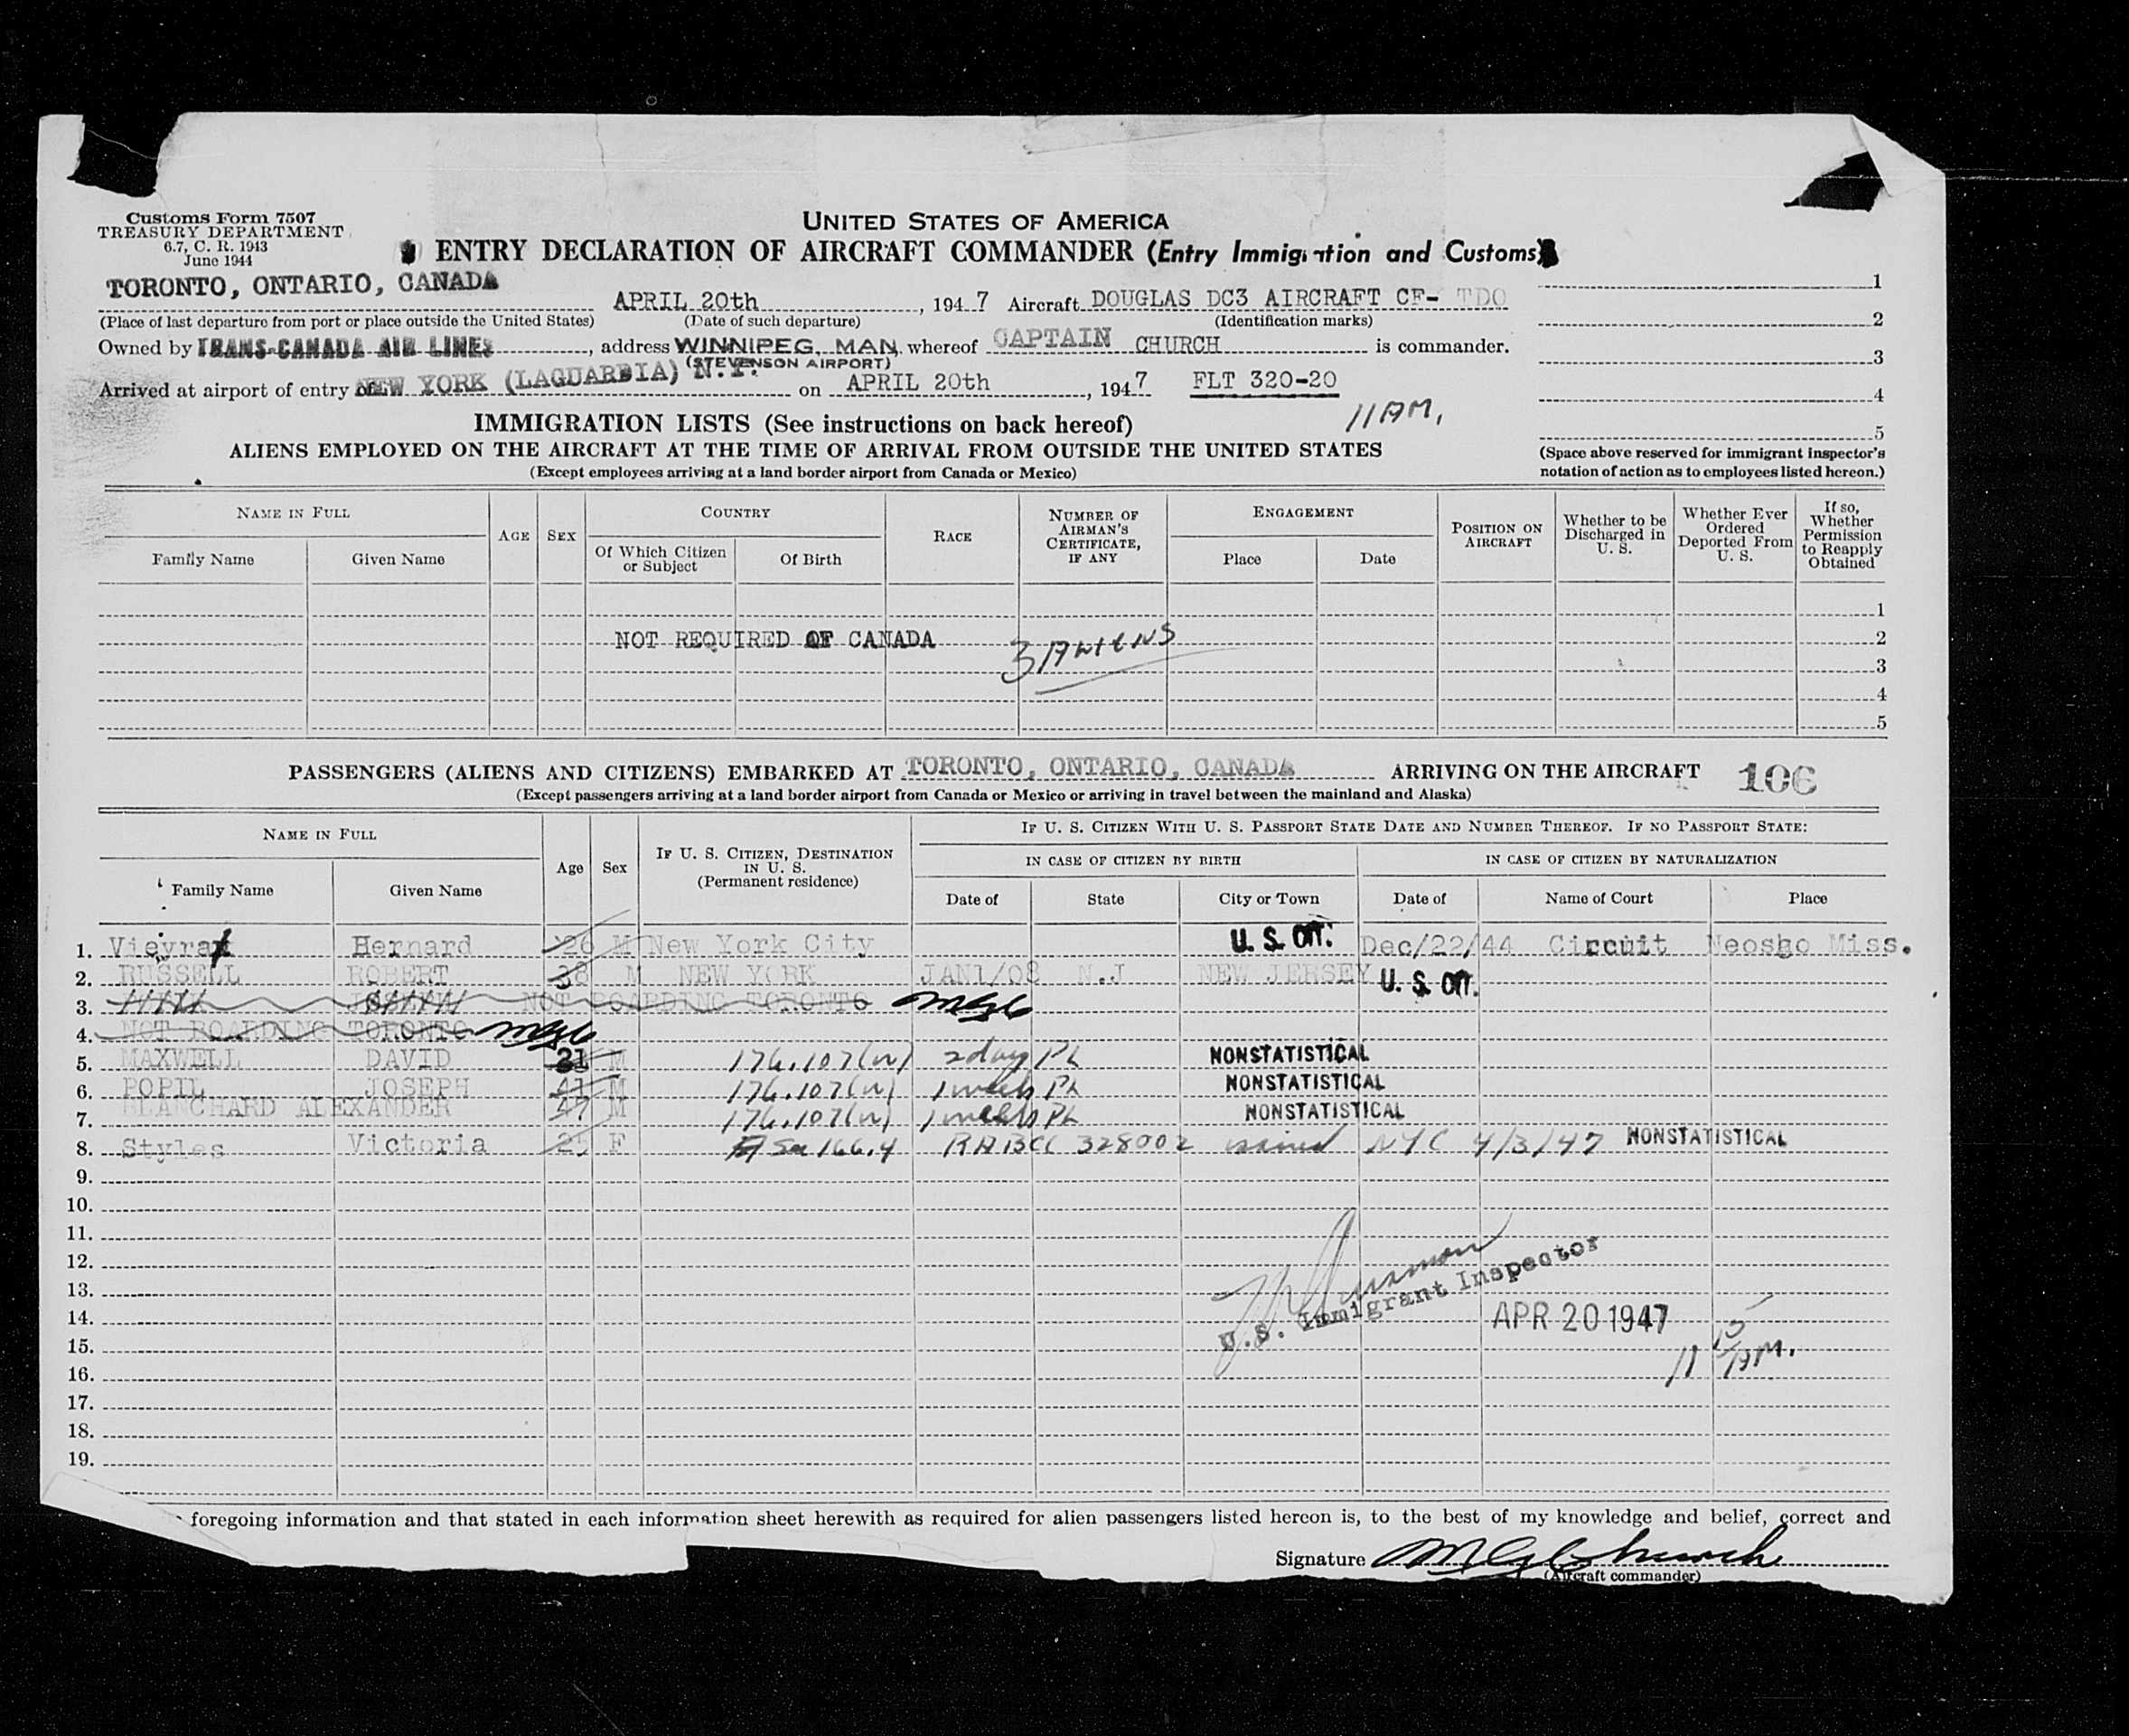 Customs Form 7507
TREASURY DEPARTMENT
6.7, C. R. 1943
June 1944
UNITED STATES OF AMERICA
ENTRY DECLARATION OF AIRCRAFT COMMANDER (Entry Immigration and Customs)
TORONTO, ONTARIO, CANADA APRIL 20th, 1947 Aircraft DOUGLAS DC3 AIRCRAFT CF- TDO
(Place of last departure from port or place outside the United States) (Date of such departure) (Identification marks)
Owned by TRANS-CANADA AIR LINES, address WINNIPEG, MAN. whereof CAPTAIN CHURCH is commander.
(STEVENSON AIRPORT)
Arrived at airport of entry of NEW YORK (LAGUARDIA) N.Y. on APRIL 20th, 1947 FLT 320-20
11 AM.
1
2
3
4
5
(Space above reserved for immigrant inspector's
notation of action as to employees listed hereon.)
IMMIGRATION LISTS (See instructions on back hereof)
ALIENS EMPLOYED ON THE AIRCRAFT AT THE TIME OF ARRIVAL FROM OUTSIDE THE UNITED STATES
(Except employees arriving at a land border airport from Canada or Mexico)
NAME IN FULL
Family Name Given Name
AGE SEX
COUNTRY
Of Which Citizen or Subject
Of Birth
RACE
NUMBER OF AIRMAN'S CERTIFICATE, IF ANY
ENGAGEMENT
Place Date
POSITION ON AIRCRAFT
Whether to be Discharged in U. S.
Whether Ever Ordered Deported From U. S.
If so, Whether Permission to Reapply Obtained
1
NOT REQUIRED OF CANADA 3 Aliens 2
3
4
5
PASSENGERS (ALIENS AND CITIZENS) EMBARKED AT TORONTO, ONTARIO, CANADA ARRIVING ON THE AIRCRAFT 106
(Except passengers arriving at a land border airport from Canada or Mexico or arriving in travel between the mainland and Alaska)
NAME IN FULL
Family Name Given Name
Age Sex
IF U. S. CITIZEN, DESTINATION IN U. S. (Permanent residence)
IF U. S. CITIZEN WITH U. S. PASSPORT STATE DATE AND NUMBER THEREOF. IF NO PASSPORT STATE:
IN CASE OF CITIZEN BY BIRTH IN CASE OF CITIZEN BY NATURALIZATION
Date of State City or Town Date of Name of Court Place
1. Vieyra Hernard 26 M New York City U. S. Cit. Dec/22/44 Circuit Neosho Miss.
2. RUSSELL ROBERT 38 M NEW YORK JAN1/08 N.J NEW JERSEY U. S. Cit.
3. JOSEPH NOT BOARDING TORONTO MGC
4. NOT BOARDING TORONTO MGC
5. MAXWELL DAVID 31 M 176.107(w) 2 day Ph NONSTATISTICAL
6. POPIL JOSEPH 41 M 176.107(w) 1 week Ph NONSTATISTICAL
7. BLANCHARD ALEXANDER 47 M 176.107(w) 1 week Ph NONSTATISTICAL
8. Styles Victoria 25 F 166.4 RABCC 328002 issued NYC 4/3/47 NONSTATISTICAL
9.
10.
11.
12.
13.
14.
15.
16.
17.
18.
19.
U.S. Immigrant Inspector
APR 20 1947
11 15 AM.
foregoing information and that stated in each information sheet herewith as required for alien passengers listed hereon is, to the best of my knowledge and belief, correct and
Signature MGChurch
(Aircraft commander)